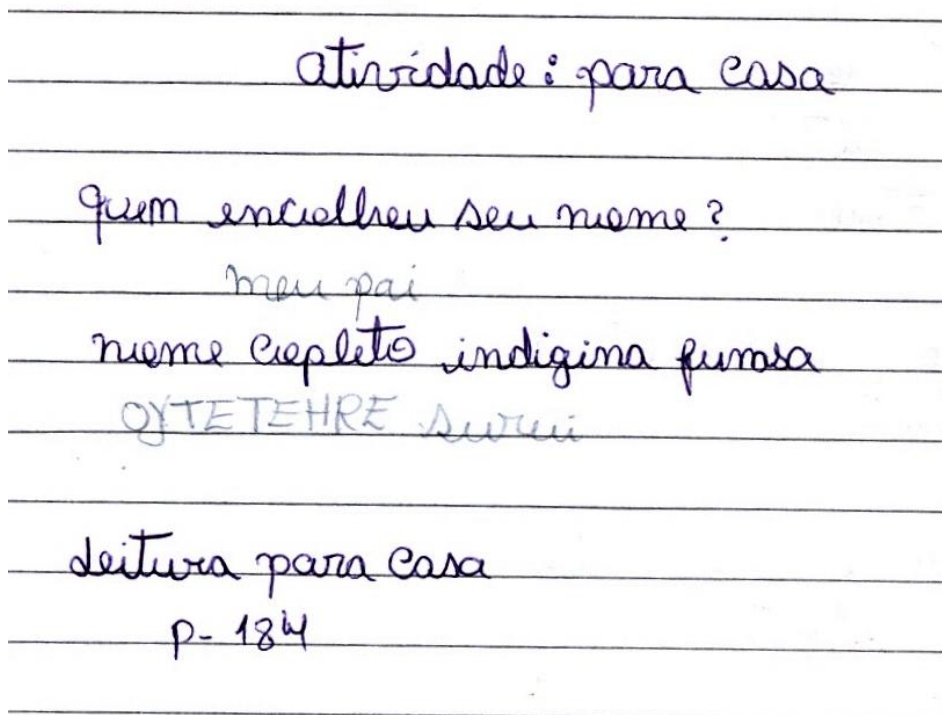 atividade: para casa
quem encolheu seu nome?
meu pai
nome copleto indigina
OYTETEHRE Surui
Leitura para casa
p- 184